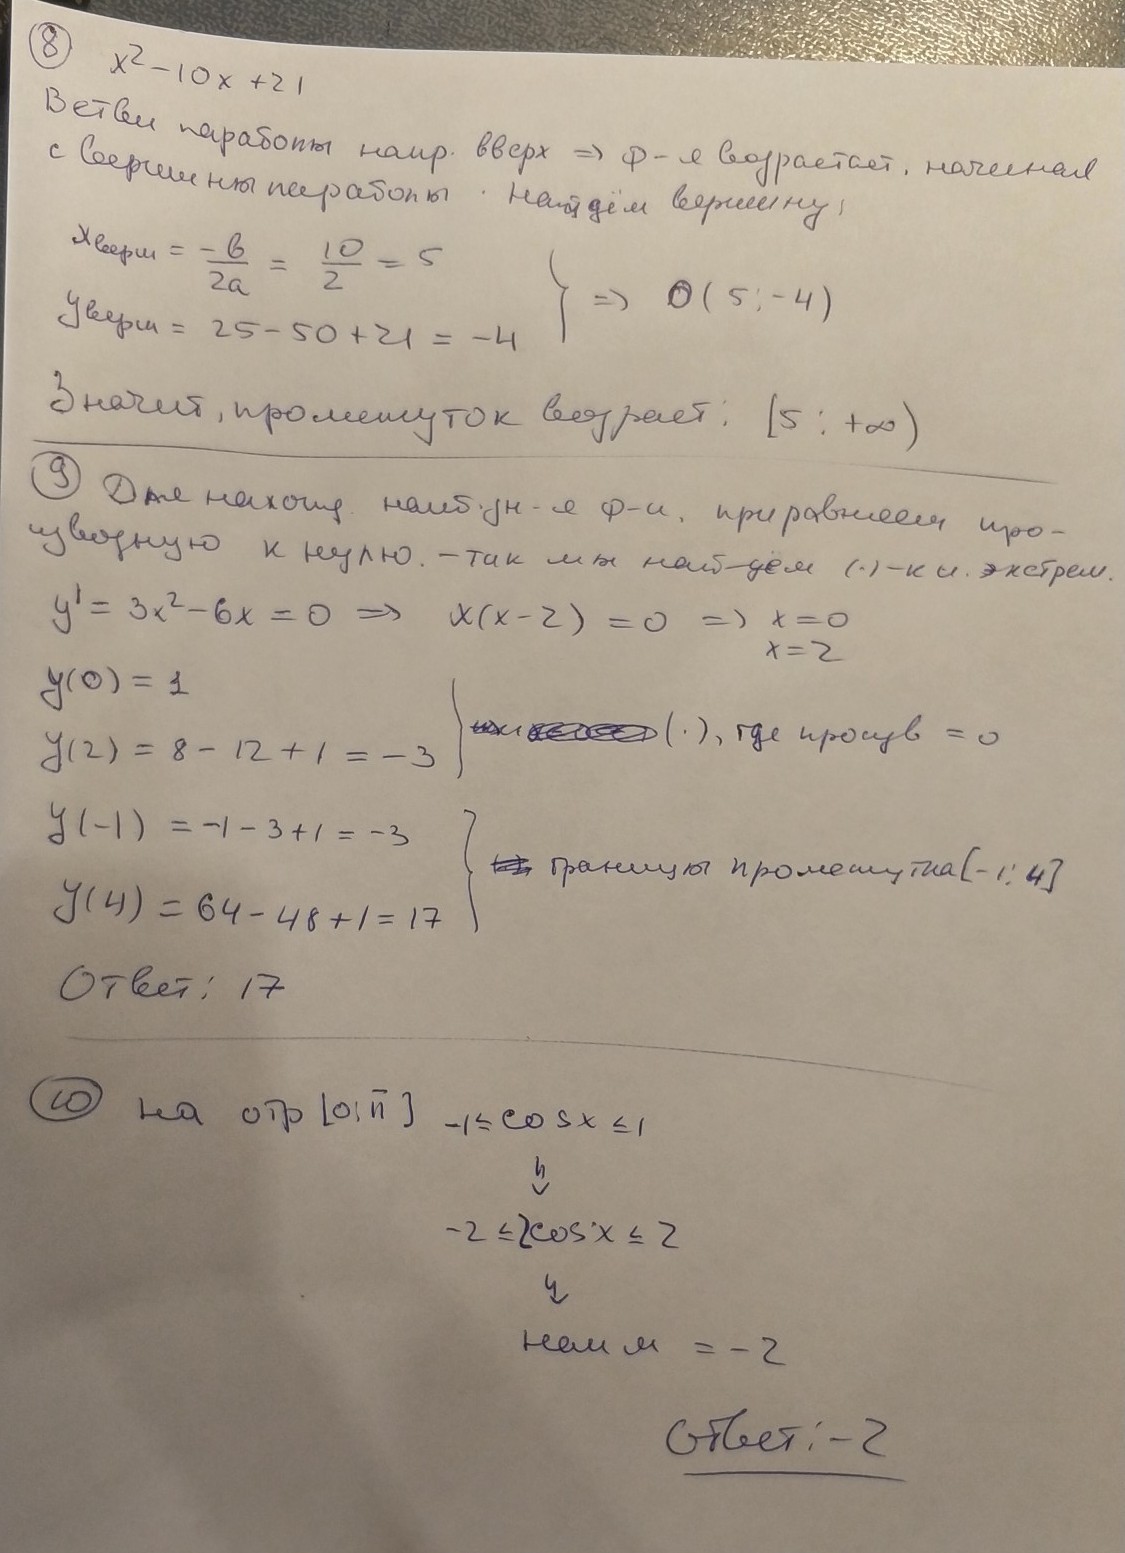 ⑧ x² - 10x + 21
Ветви параболы напр. вверх => ф-я возрастает, начиная
с вершины параболы. Найдём вершину:
xверш = -b/2a = 10/2 = 5
yверш = 25 - 50 + 21 = -4 } => O(5; -4)
Значит, промежуток возраст: [5; +∞)
⑨ Для нахожд. наиб. зн-я ф-и, приравняем про-
изводную к нулю. - так мы найдём (·)-ки экстрем.
y' = 3x² - 6x = 0 => x(x-2) = 0 => x = 0
x = 2
y(0) = 1
y(2) = 8 - 12 + 1 = -3 } (·), где произв = 0
y(-1) = -1 - 3 + 1 = -3
y(4) = 64 - 48 + 1 = 17 } границы промежутка [-1; 4]
Ответ: 17
⑩ на отр [0; π] -1 ≤ cos x ≤ 1
⇓
-2 ≤ 2cos x ≤ 2
⇓
наим = -2
Ответ: -2